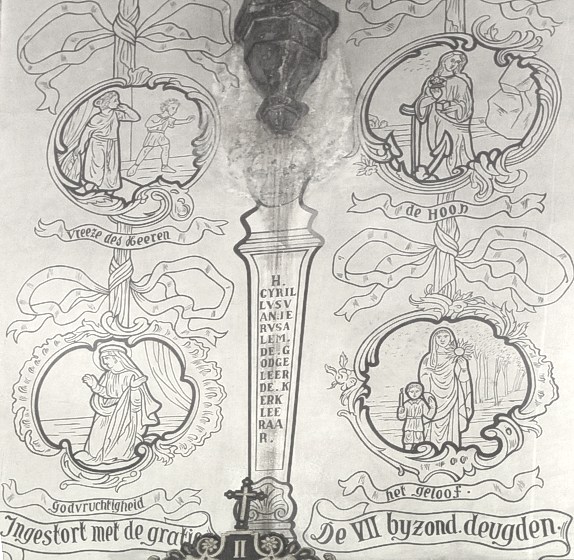 vreeze des Heeren
de Hoop
H.
CYRIL
LVSV
ANJE
RVSA
LEM.
DE.G
ODGE
LEER
DE.K
ERK
LEE
RAA
R.
godvruchtigheid
het geloof.
Ingestort met de gratie
De VII byzond.deugden.
II